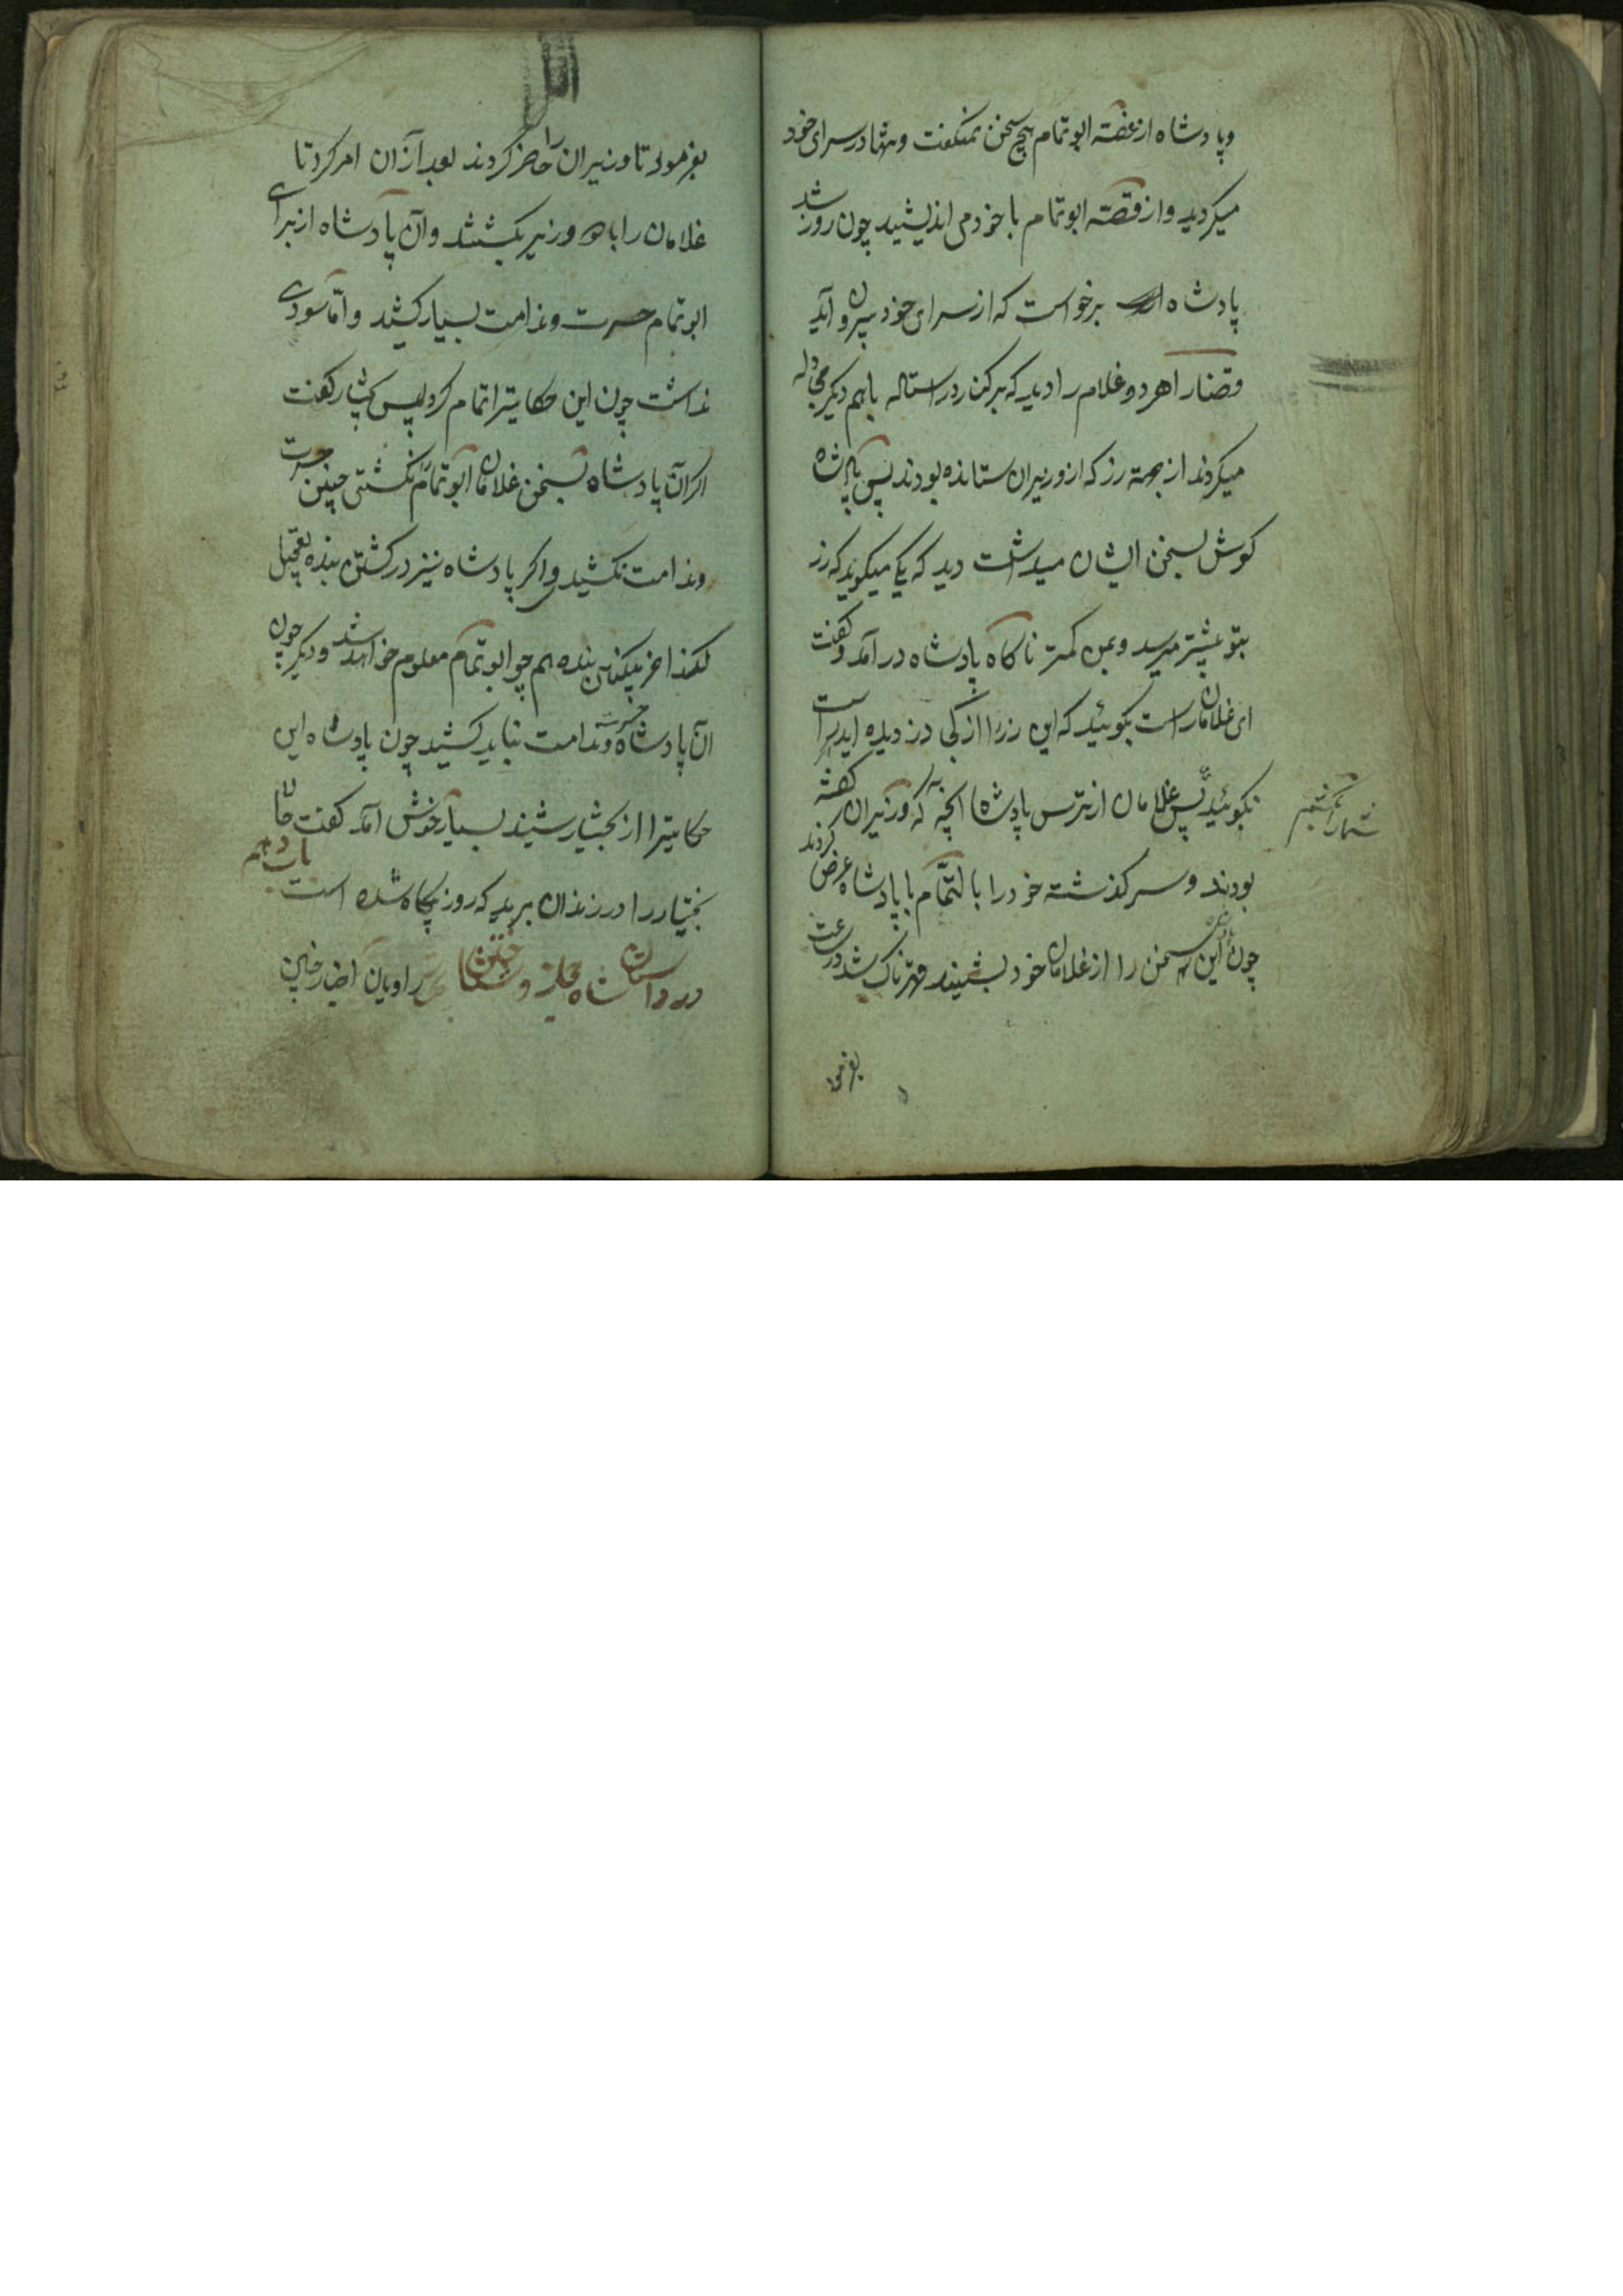 وپادشاه از غصّه ابوتمام هیچ سخن نمیکفت وتنها در سرای خود
میکردید واز قصّه ابوتمام با خود می اندیشید چون روز شد
پادشاه برخواست که از سرای خود بیرون آید
وقضارا هر دو غلام را دید که بر کنار در استاله باهم دیکر مجادله
میکردند از بهمة زر که از وزیران ستانده بودند پس پادشاه
کوش بسخن ایشان میداشت دید که یکی میکوید که زر
بتو بیشتر میرسد وبمن کمتر ناکاه پادشاه در آمد وکفت
ای غلامان راست بکوئید که این زر را از کی دزدیده اید راست
بکوئید پس غلامان از ترس پادشاه انچه که وزیران کفته
بودند وسرکذشته خود را بالتمّام با پادشاه عرض کردند
چون این سخن را از غلامان خود بشنیند قهرناک شد در ساعت
بفرمود
بفرمود تا وزیران را حاضر کردند بعد از آن امر کرد تا
غلامان را با وزیر بکشتند وآن پادشاه از برای
ابوتمام حسرت وندامت بسیار کشید وامّا سودی
نداشت چون این حکایترا تمام کرد پس بختیار کفت
اکر آن پادشاه بسخن غلامان ابوتمام را نکشتی چنین حسرت
وندامت نکشیدی واکر پادشاه نیز در کشتن بنده تعجیل
نکند اخر بیکناهی بنده هم چو ابوتمام معلوم خواهد شد ودیکر چون
آن پادشاه حسرت وندامت نباید کشید چون پادشاه این
حکایترا از بختیار شیند بسیار خوش آمد کفت حالا
بختیار را در زندان برید که روز بیکاه شده است
باب دهم
در داستان شاه حجاز و راویان اخبار چنین